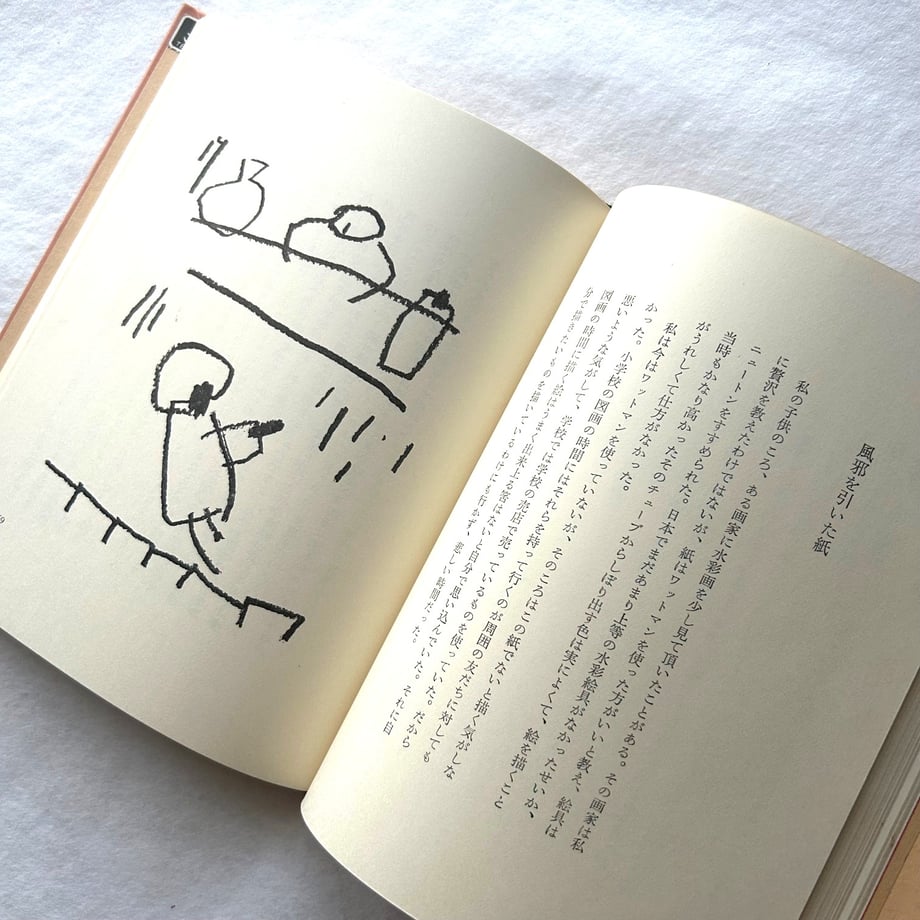 風邪を引いた紙
私の子供のころ、ある画家に水彩画を少し見て頂いたことがある。その画家は私
に贅沢を教えたわけではないが、紙はワットマンを使った方がいいと教え、絵具は
ニュートンをすすめられた。日本でまだあまり上等の水彩絵具がなかったせいか、
当時もかなり高かったそのチューブからしぼり出す色は実によくて、絵を描くこと
がうれしくて仕方がなかった。
私は今はワットマンを使っていないが、そのころはこの紙でないと描く気がしな
かった。小学校の図画の時間にはそれらを持って行くのが周囲の友だちに対しても
悪いような気がして、学校では学校の売店で売っているものを使っていた。だから
図画の時間に描く絵はうまく出来上る筈はないと自分で思い込んでいた。それに自
分で描きたいものを描いているわけにも行かず、悲しい時間だった。